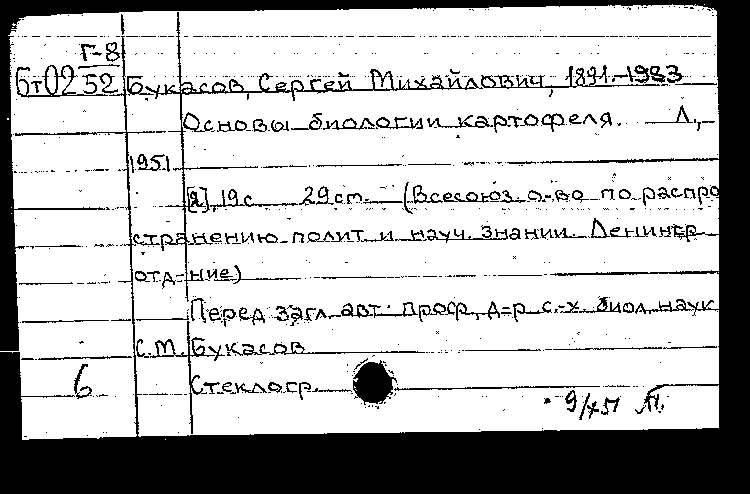 Г-8
БТ02 52 Букасов, Сергей Михайлович, 1891-1983
Основы биологии картофеля. Л.,
1951
[2], 19 с 29 см. (Всесоюз. о-во по распро
странению полит и науч. знании. Ленингр
отд-ние)
Перед загл. авт: проф, д-р с.-х. биол. наук
С.М. Букасов
Стеклогр.
6
9/XI